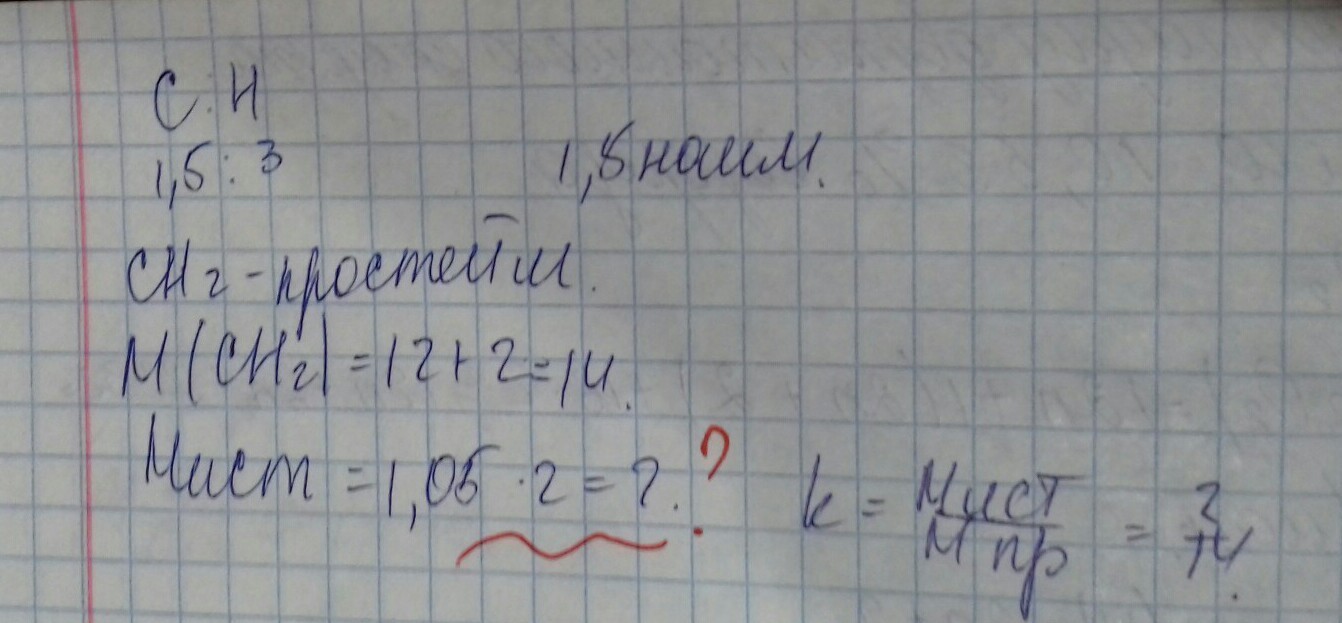 С:Н
1,5:3 1,5 наим.
CH2 - простейш.
M(CH2)=12+2=14.
Mист = 1,05 · 2 = ?. ?
k = Mист / Mпр = ? / 14.